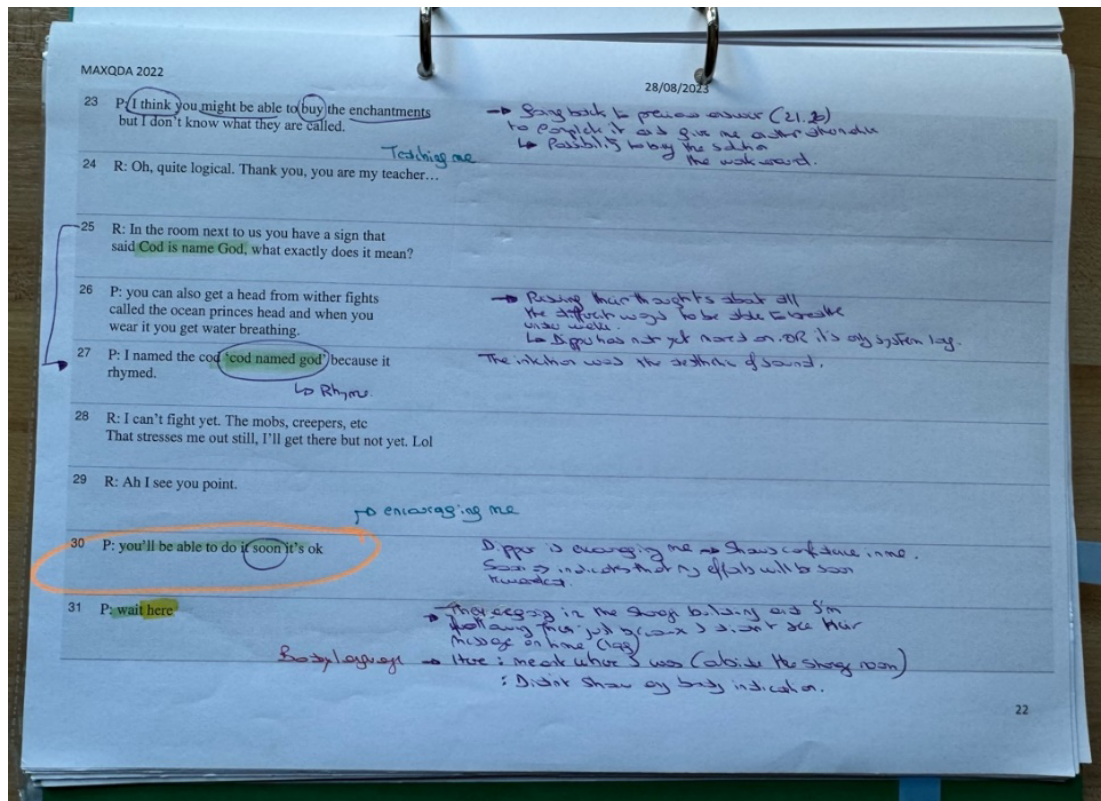 MAXQDA 2022
28/08/2023
23 P: I think you might be able to buy the enchantments
but I don't know what they are called.
→ Going back to previous answer (21.26)
to complete it and give me another alternative
↳ Possibility to buy the
the work
Teaching me
24 R: Oh, quite logical. Thank you, you are my teacher…
25 R: In the room next to us you have a sign that
said Cod is name God, what exactly does it mean?
26 P: you can also get a head from wither fights
called the ocean princes head and when you
wear it you get water breathing.
→ their thoughts about all
the different ways to be able to breathe
under water.
↳ Dipper has not yet moved on, OR it's only system lag.
27 P: I named the cod 'cod named god' because it
rhymed.
The intention was the aesthetic of sound.
↳ Rhyme.
28 R: I can't fight yet. The mobs, creepers, etc
That stresses me out still, I'll get there but not yet. Lol
29 R: Ah I see you point.
→ encouraging me
30 P: you'll be able to do it soon it's ok
Dipper is encouraging me → Shows confidence in me.
Soon => indicates that my efforts will be soon
rewarded.
31 P: wait here
→ They are going in the storage building and I'm
following them just because I didn't see their
message on time (lag)
Body language → Here : meant where I was (outside the storage room)
: Didn't show any body indication.
22